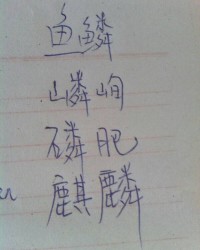 鱼鳞
嶙峋
磷肥
麒麟